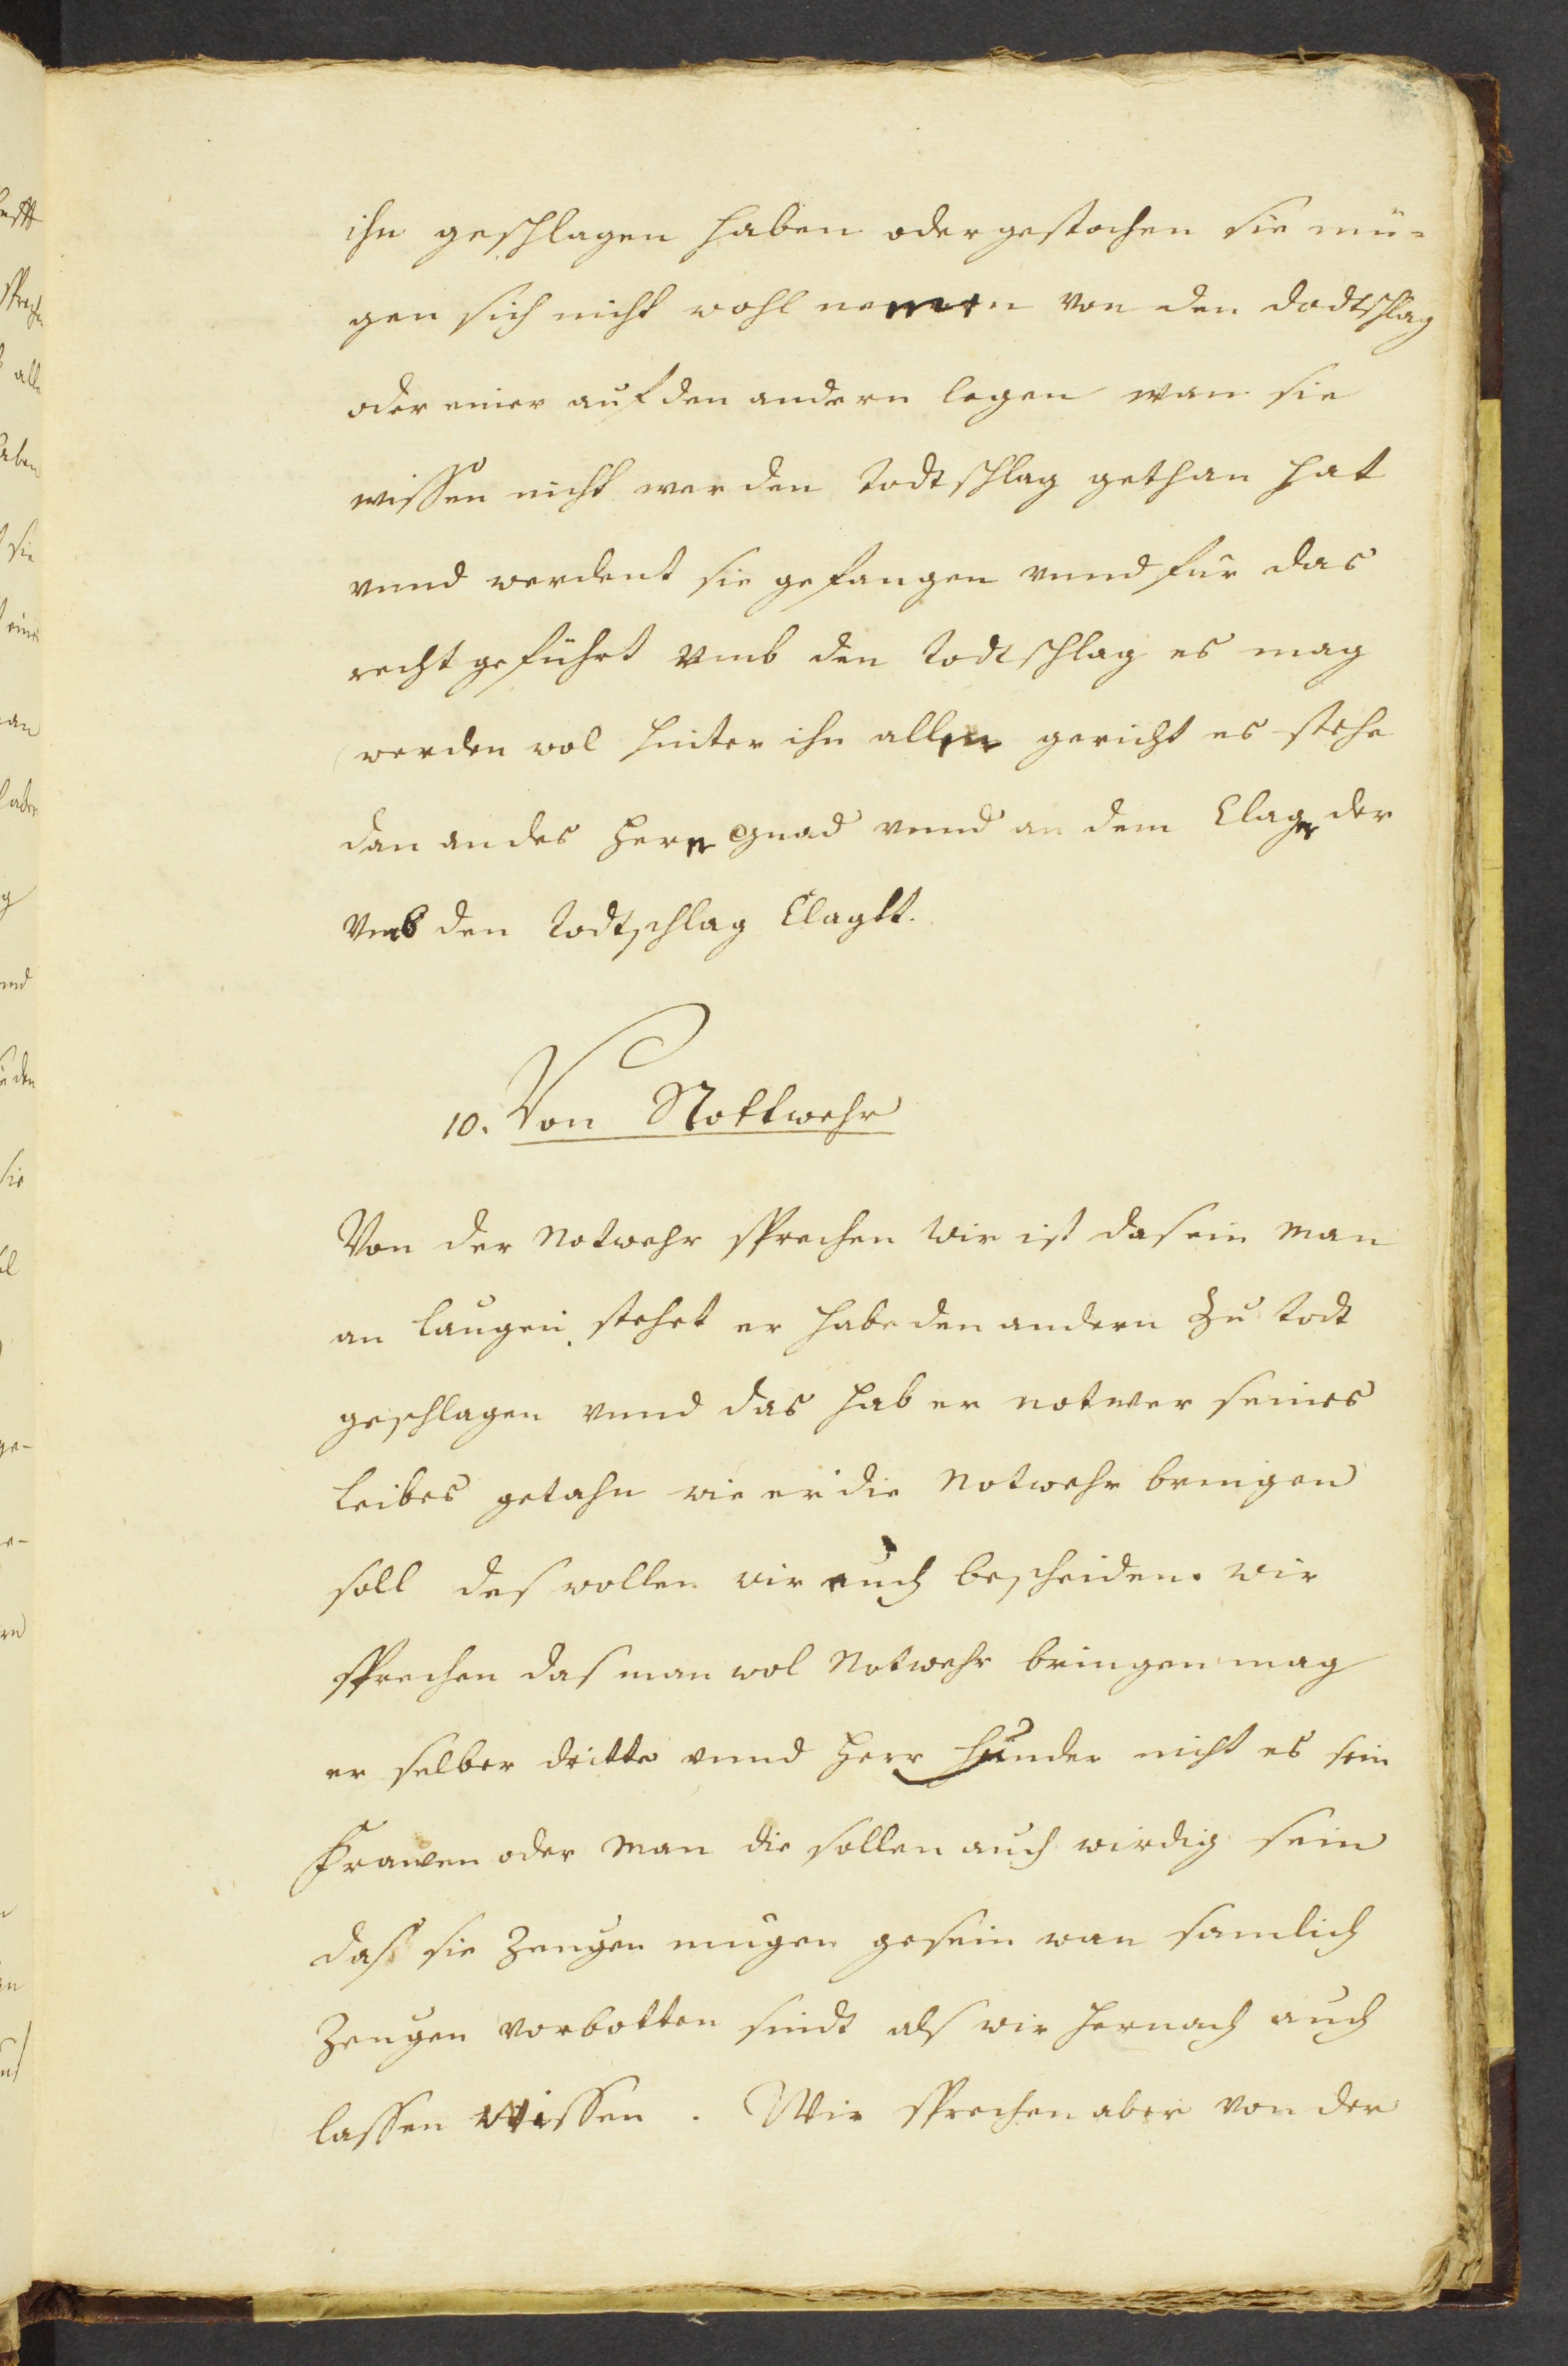 ihn geschlagen haben oder gestochen sie mü-
gen sich nicht wohl nemen von den dodtschlag
oder einer auf den andern legen wan sie
wissen nicht wer den todtschlag gethan hat
vnnd werdent sie gefangen vnnd für das
recht geführt vmb den todtschlag es mag
werden wol hinter ihn allen gericht es stehe
dan an des Herrn gnad vnnd an dem Clager der
vmb den todtschlag Clagtt.
10. Von Nottwehr
Von der Notwehr sprechen wir ist das ein Man
an laugen stehet er habe den andern zu todt
geschlagen vnnd das hab er notwer seines
leibes getahn wie er die Notwehr bringen
soll des wollen wir euch bescheiden. wir
sprechen das man wol Notwehr bringen mag
er selber dritte vnnd herr hinder nicht es sein
Frawen oder Man die sollen auch wirdig sein
das sie Zeugen mugen gesein wan samlich
Zeugen vorbotten sindt als wir hernach auch
lassen wissen. Wir sprechen aber von der